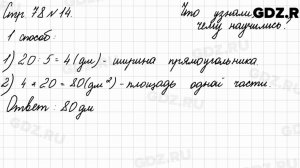 Стр. 78 № 14.
Что узнали,
чему научились?
GDZ.RU
1 способ
1) 20 : 5 = 4 (дм) - ширина прямоугольника.
2) 4 * 20 = 80 (дм²) - площадь одной части.
Ответ: 80 дм